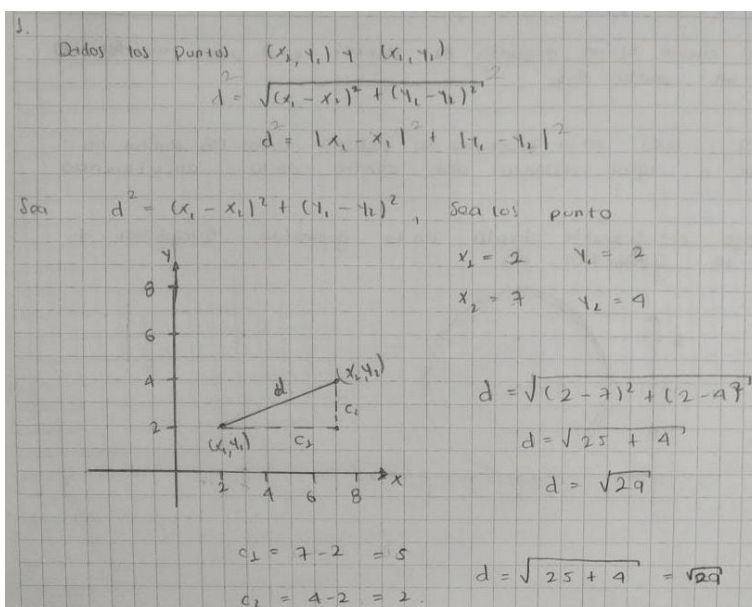 1.
Dados los puntos (x₂, y₁) y (x₁, y₁)
d² = √(x₁ - x₂)² + (y₁ - y₂)² ²
d² = |x₁ - x₂|² + |y₁ - y₂|²
Sea d² = (x₁ - x₂)² + (y₁ - y₂)², Sea los punto
x₁ = 2 y₁ = 2
x₂ = 7 y₂ = 4
y
8
6
4
2
d
(x₂, y₂)
c₂
(x₁, y₁)
c₁
2 4 6 8 x
d = √(2 - 7)² + (2 - 4)²
d = √25 + 4
d = √29
c₁ = 7 - 2 = 5
c₂ = 4 - 2 = 2.
d = √25 + 4 = √29